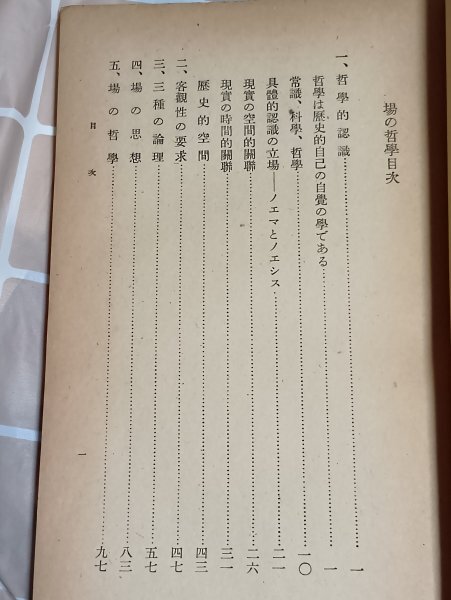 場の哲學目次
一、哲學的認識……………一
哲學は歷史的自己の自覺の學である……………一
常識、科學、哲學……………一〇
具體的認識の立場――ノエマとノエシス……………二一
現實の空間的關聯……………二六
現實の時間的關聯……………三一
歷史的空間……………四三
二、客觀性の要求……………四七
三、三種の論理……………五七
四、場の思想……………八三
五、場の哲學……………九七
目次
一